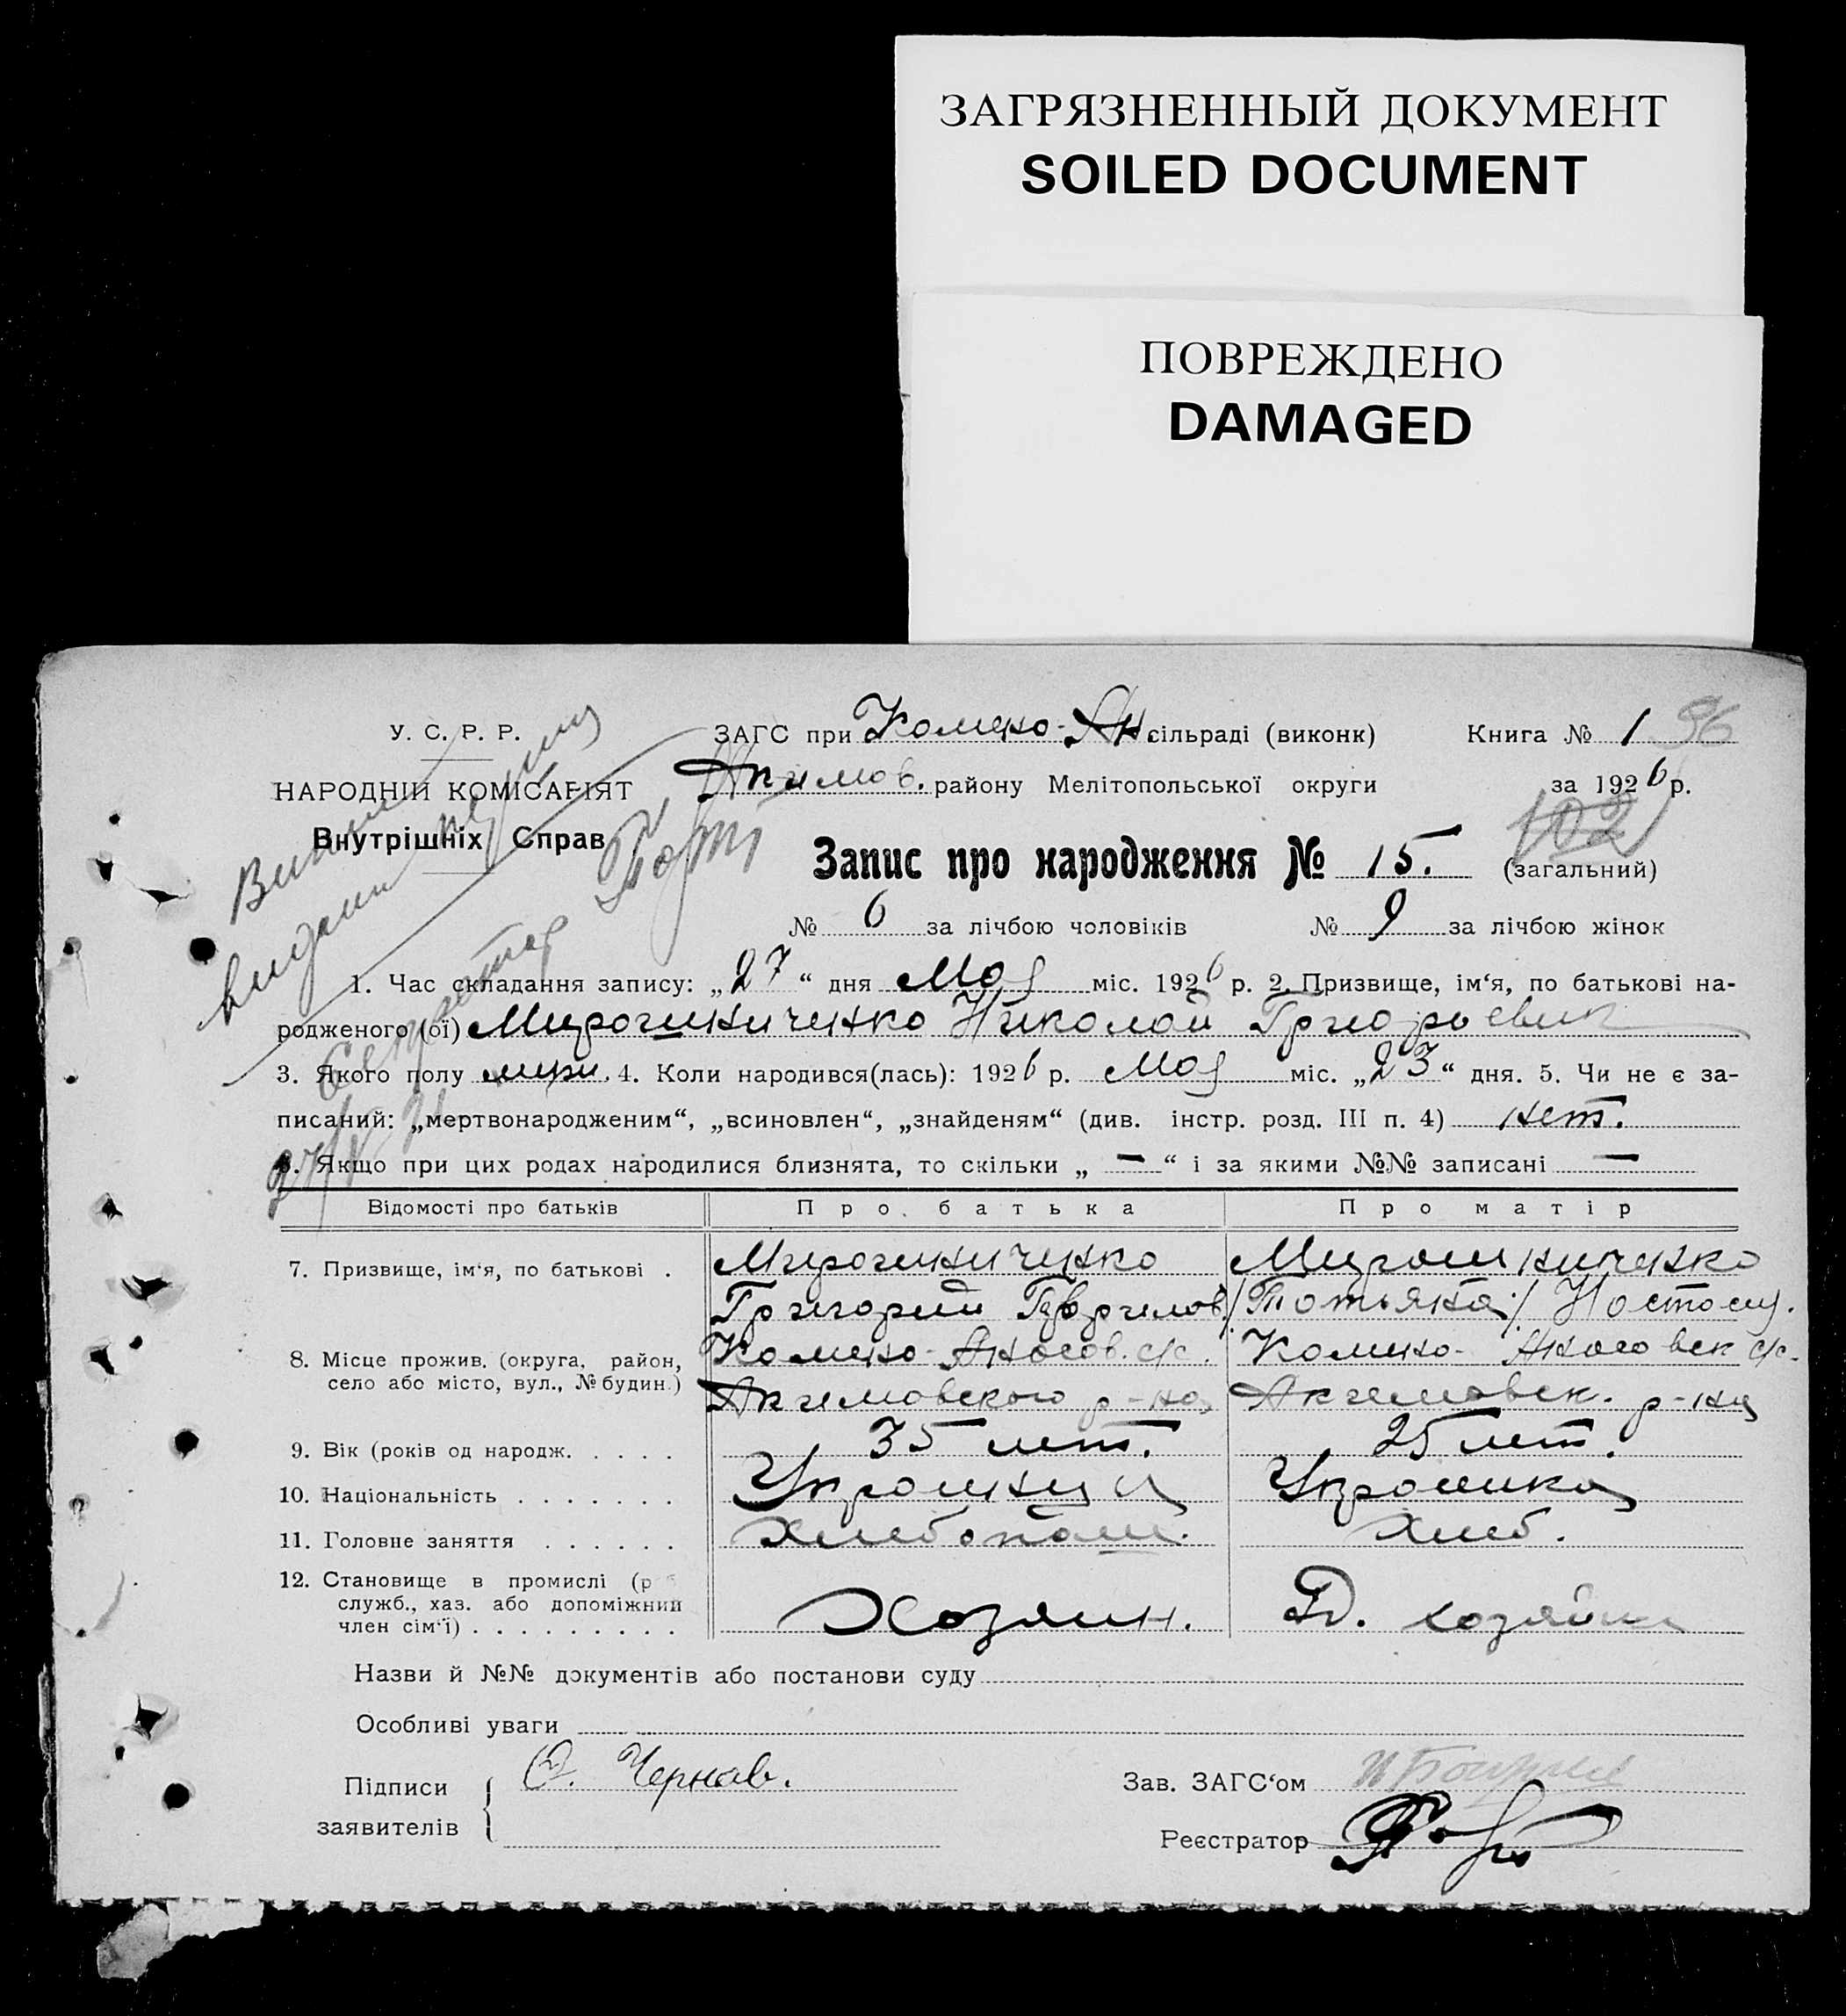 ЗАГРЯЗНЕННЫЙ ДОКУМЕНТ
SOILED DOCUMENT
ПОВРЕЖДЕНО
DAMAGED
У. С. Р. Р.
ЗАГС при Комено-Ан. сільраді (виконк)
Книга № 1 96
НАРОДНІЙ КОМІСАРІЯТ
Акимов. району Мелітопольської округи
за 1926 р.
Внутрішніх Справ
102
Запис про народження № 15. (загальний)
№ 6 за лічбою чоловіків № 9 за лічбою жінок
1. Час складання запису: „27“ дня Мая міс. 1926 р. 2. Призвище, ім‘я, по батькові на-
родженого (ої) Мирошниченко Николай Григорьевич
3. Якого полу муж. 4. Коли народився(лась): 1926 р. Мая міс. „23“ дня. 5. Чи не є за-
писаний: „мертвонародженим“, „всиновлен“, „знайденям“ (див. інстр. розд. III п. 4) нет.
6. Якщо при цих родах народилися близнята, то скільки „ — “ і за якими №№ записані —
Відомості про батьків Про батька Про матір
7. Призвище, ім‘я, по батькові . Мирошниченко Мирошниченко
Григорий Гаврилов. /Татьяна/ Настасщ.
8. Місце прожив. (округа, район, Комено-Аносов. с/с. Комено-Аносовск с/с.
село або місто, вул., № будин.) Акимовского р-на Акимовск. р-на
9. Вік (років од народж. . . . . 35 лет. 25 лет.
10. Національність . . . . . . . Украинец Украинка
11. Головне заняття . . . . . . Хлебопаш. Хлеб.
12. Становище в промислі (роб
служб., хаз. або допоміжний
член сім‘ї) . . . . . . . . . Хозяин. Д. хозяйка
Назви й №№ документів або постанови суду
Особливі уваги
Підписи
заявителів
Чернав.
Зав. ЗАГС‘ом
Реєстратор